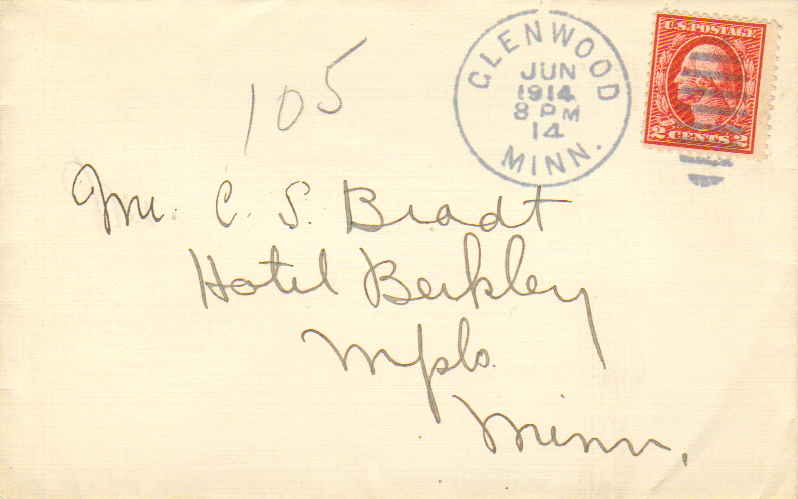 105
GLENWOOD
JUN
1914
8 PM
14
MINN.
U.S. POSTAGE
2 CENTS 2
Mr. C. S. Bradt
Hotel Berkley
Mpls.
Minn.